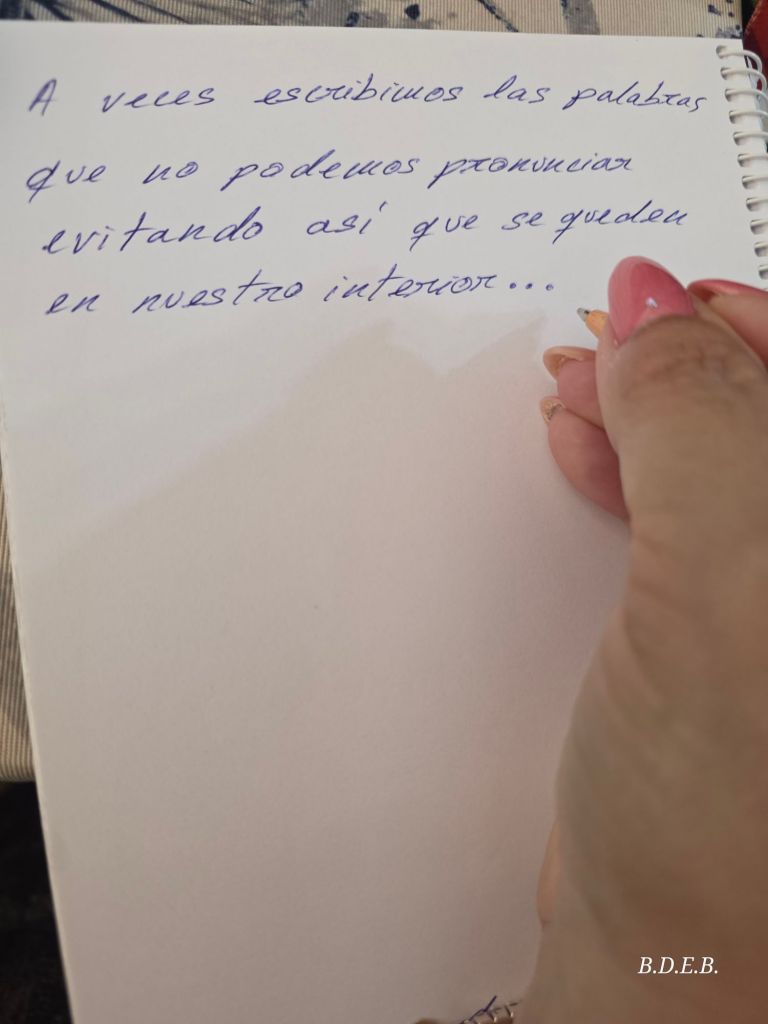 A veces escribimos las palabras
que no podemos pronunciar
evitando así que se queden
en nuestro interior...
B.D.E.B.